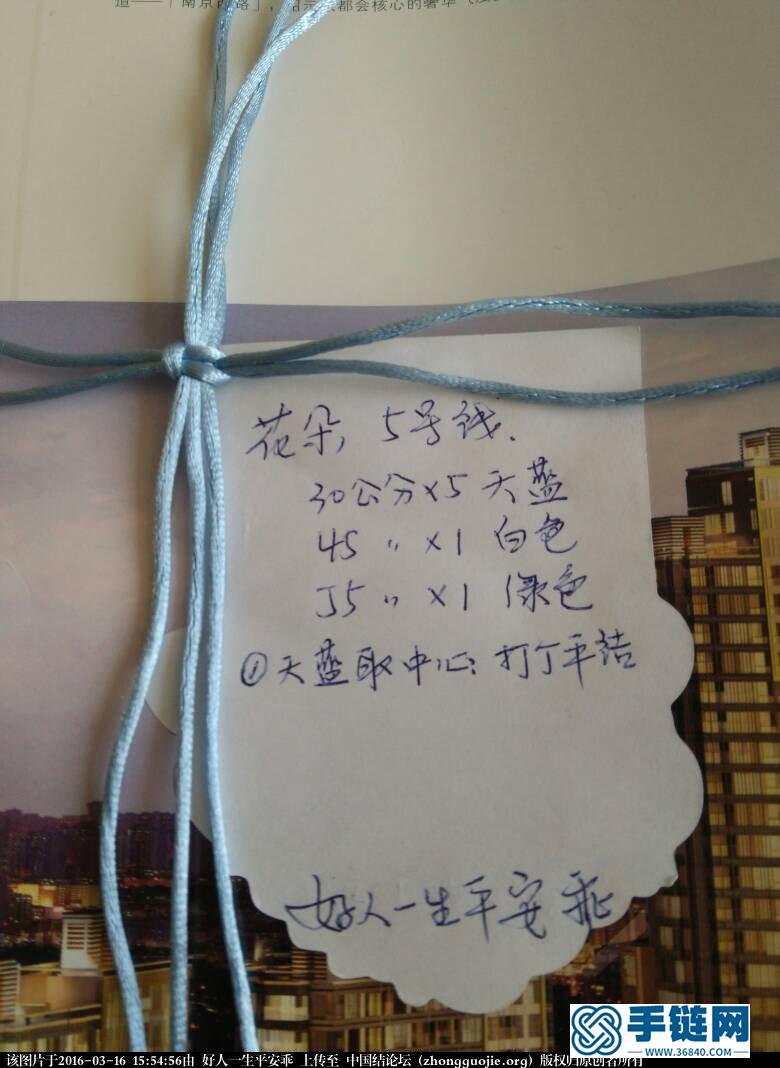 道——「南京西路」，
都会核心的奢华
花朵，5号线.
30公分×5 天蓝
45 〃 ×1 白色
55 〃 ×1 绿色
①天蓝取中心：打丁平结
好人一生平安乖
手链网
www.36840.com
该图片于2016-03-16 15:54:56由 好人一生平安乖 上传至 中国结论坛 (zhongguojie.org) 版权归原创者所有